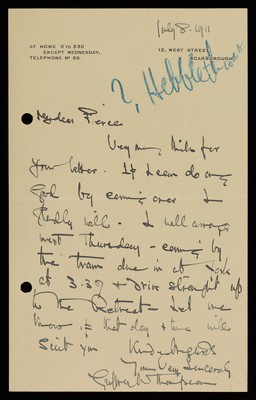 July 8. 1911
AT HOME 2 to 3.30
EXCEPT WEDNESDAY,
TELEPHONE Nº 86.
12, WEST STREET,
SCARBOROUGH.
?, Hebblethwaite
My dear Pierce
Very many thanks for
your letter. If I can do any
good by coming over I
gladly will. I will arrange
next Thursday - coming by
the train due in at York
at 3.37 & drive straight up
to the Retreat - Let me
know if that day & time will
suit you Kind regards
Yours very sincerely
Thompson